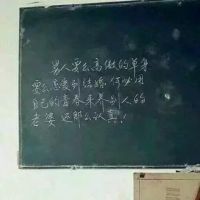 男人要么高傲的单身
要么恋爱到结婚 何必用
自己的青春来养别人的
老婆 还那么认真！